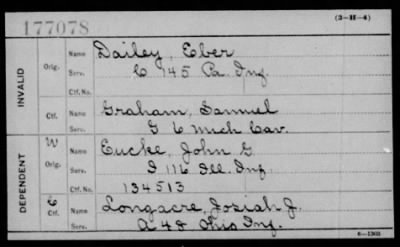 177078
(3-H-4)
INVALID
Orig.
Name Dailey, Eber
Serv. C 145 Pa. Inf.
Ctf. No.
Ctf.
Name Graham, Samuel
Serv. G 6 Mich Cav.
DEPENDENT
W
Orig.
Name Eucke, John G.
Serv. I 116 Ill. Inf.
Ctf. No. 134513
C
Ctf.
Name Longacre, Josiah J.
Serv. A 48 Ohio Inf.